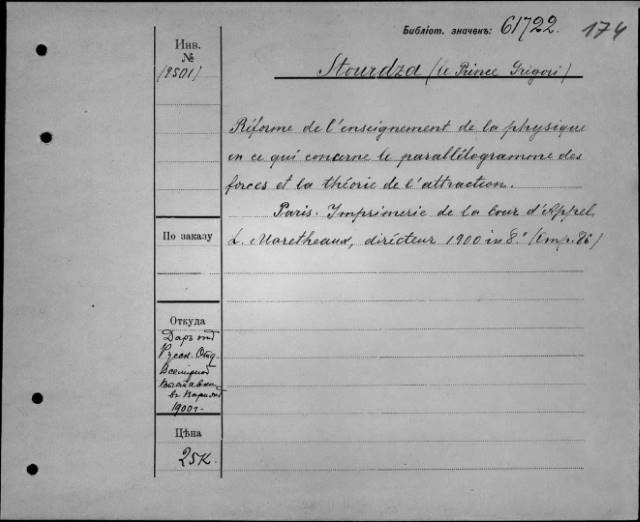 Библіот. значекъ: 61722. 174
Инв.
№
(8501)
Stourdza (le Prince Grigori)
Réforme de l'enseignement de la physique
en ce qui concerne le parallélogramme des
forces et la théorie de l'attraction.
Paris. Imprimerie de la Cour d'Appel,
L. Maretheaux, directeur 1900 in 8.°
По заказу
Откуда
Даръ отъ
Русск. Отд.
Всемірной
Выставки
въ Парижѣ
1900 г.
Цѣна
25 к.